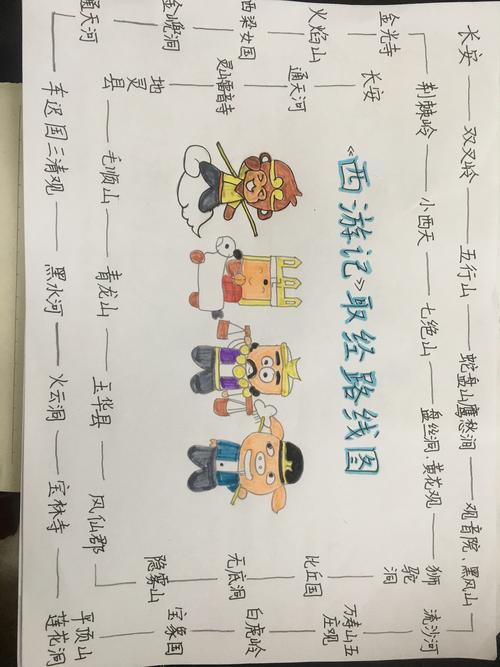 《西游记》取经路线图
长安
双叉岭
五行山
蛇盘山鹰愁涧
观音院、黑风山
流沙河
万寿山五
庄观
白虎岭
宝象国
平顶山
莲花洞
宝林寺
火云洞
黑水河
车迟国三清观
通天河
金 洞
西梁女国
火焰山
金光寺
荆棘岭
小西天
七绝山
盘丝洞、黄花观
狮驼
洞
比丘国
无底洞
隐雾山
风仙郡
玉华县
青龙山
毛顺山
地灵
县
灵山雷音寺
通天河
长安